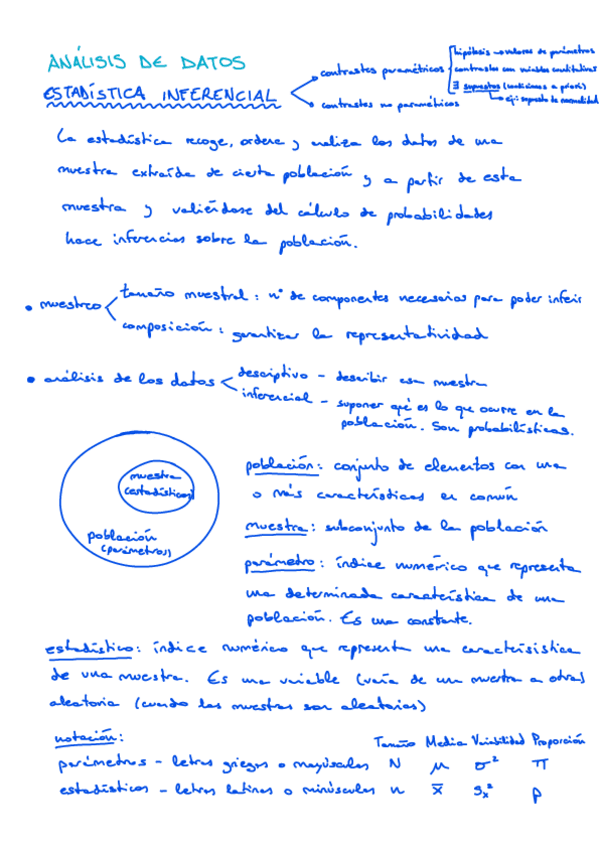 ANÁLISIS DE DATOS
ESTADÍSTICA INFERENCIAL
contrastes paramétricos
hipótesis → valores de parámetros
contrastes con variables cuantitativas
∃ supuestos (condiciones a priori)
ej: supuesto de normalidad
contrastes no paramétricos
La estadística recoge, ordena y analiza los datos de una
muestra extraída de cierta población y a partir de esta
muestra y valiéndose del cálculo de probabilidades
hace inferencias sobre la población.
• muestreo
tamaño muestral: nº de componentes necesarios para poder inferir
composición: garantizar la representatividad
• análisis de los datos
descriptivo - describir esa muestra
inferencial - suponer qué es lo que ocurre en la
población. Son probabilísticas.
muestra
(estadísticos)
población
(parámetros)
población: conjunto de elementos con una
o más características en común
muestra: subconjunto de la población
parámetro: índice numérico que representa
una determinada característica de una
población. Es una constante.
estadístico: índice numérico que representa una caracterísistica
de una muestra. Es una variable (varía de una muestra a otra)
aleatoria (cuando las muestras son aleatorias)
notación:
Tamaño Media Variabilidad Proporción
parámetros - letras griegas o mayúsculas N μ σ² π
estadísticos - letras latinas o minúsculas n x̄ Sx² p